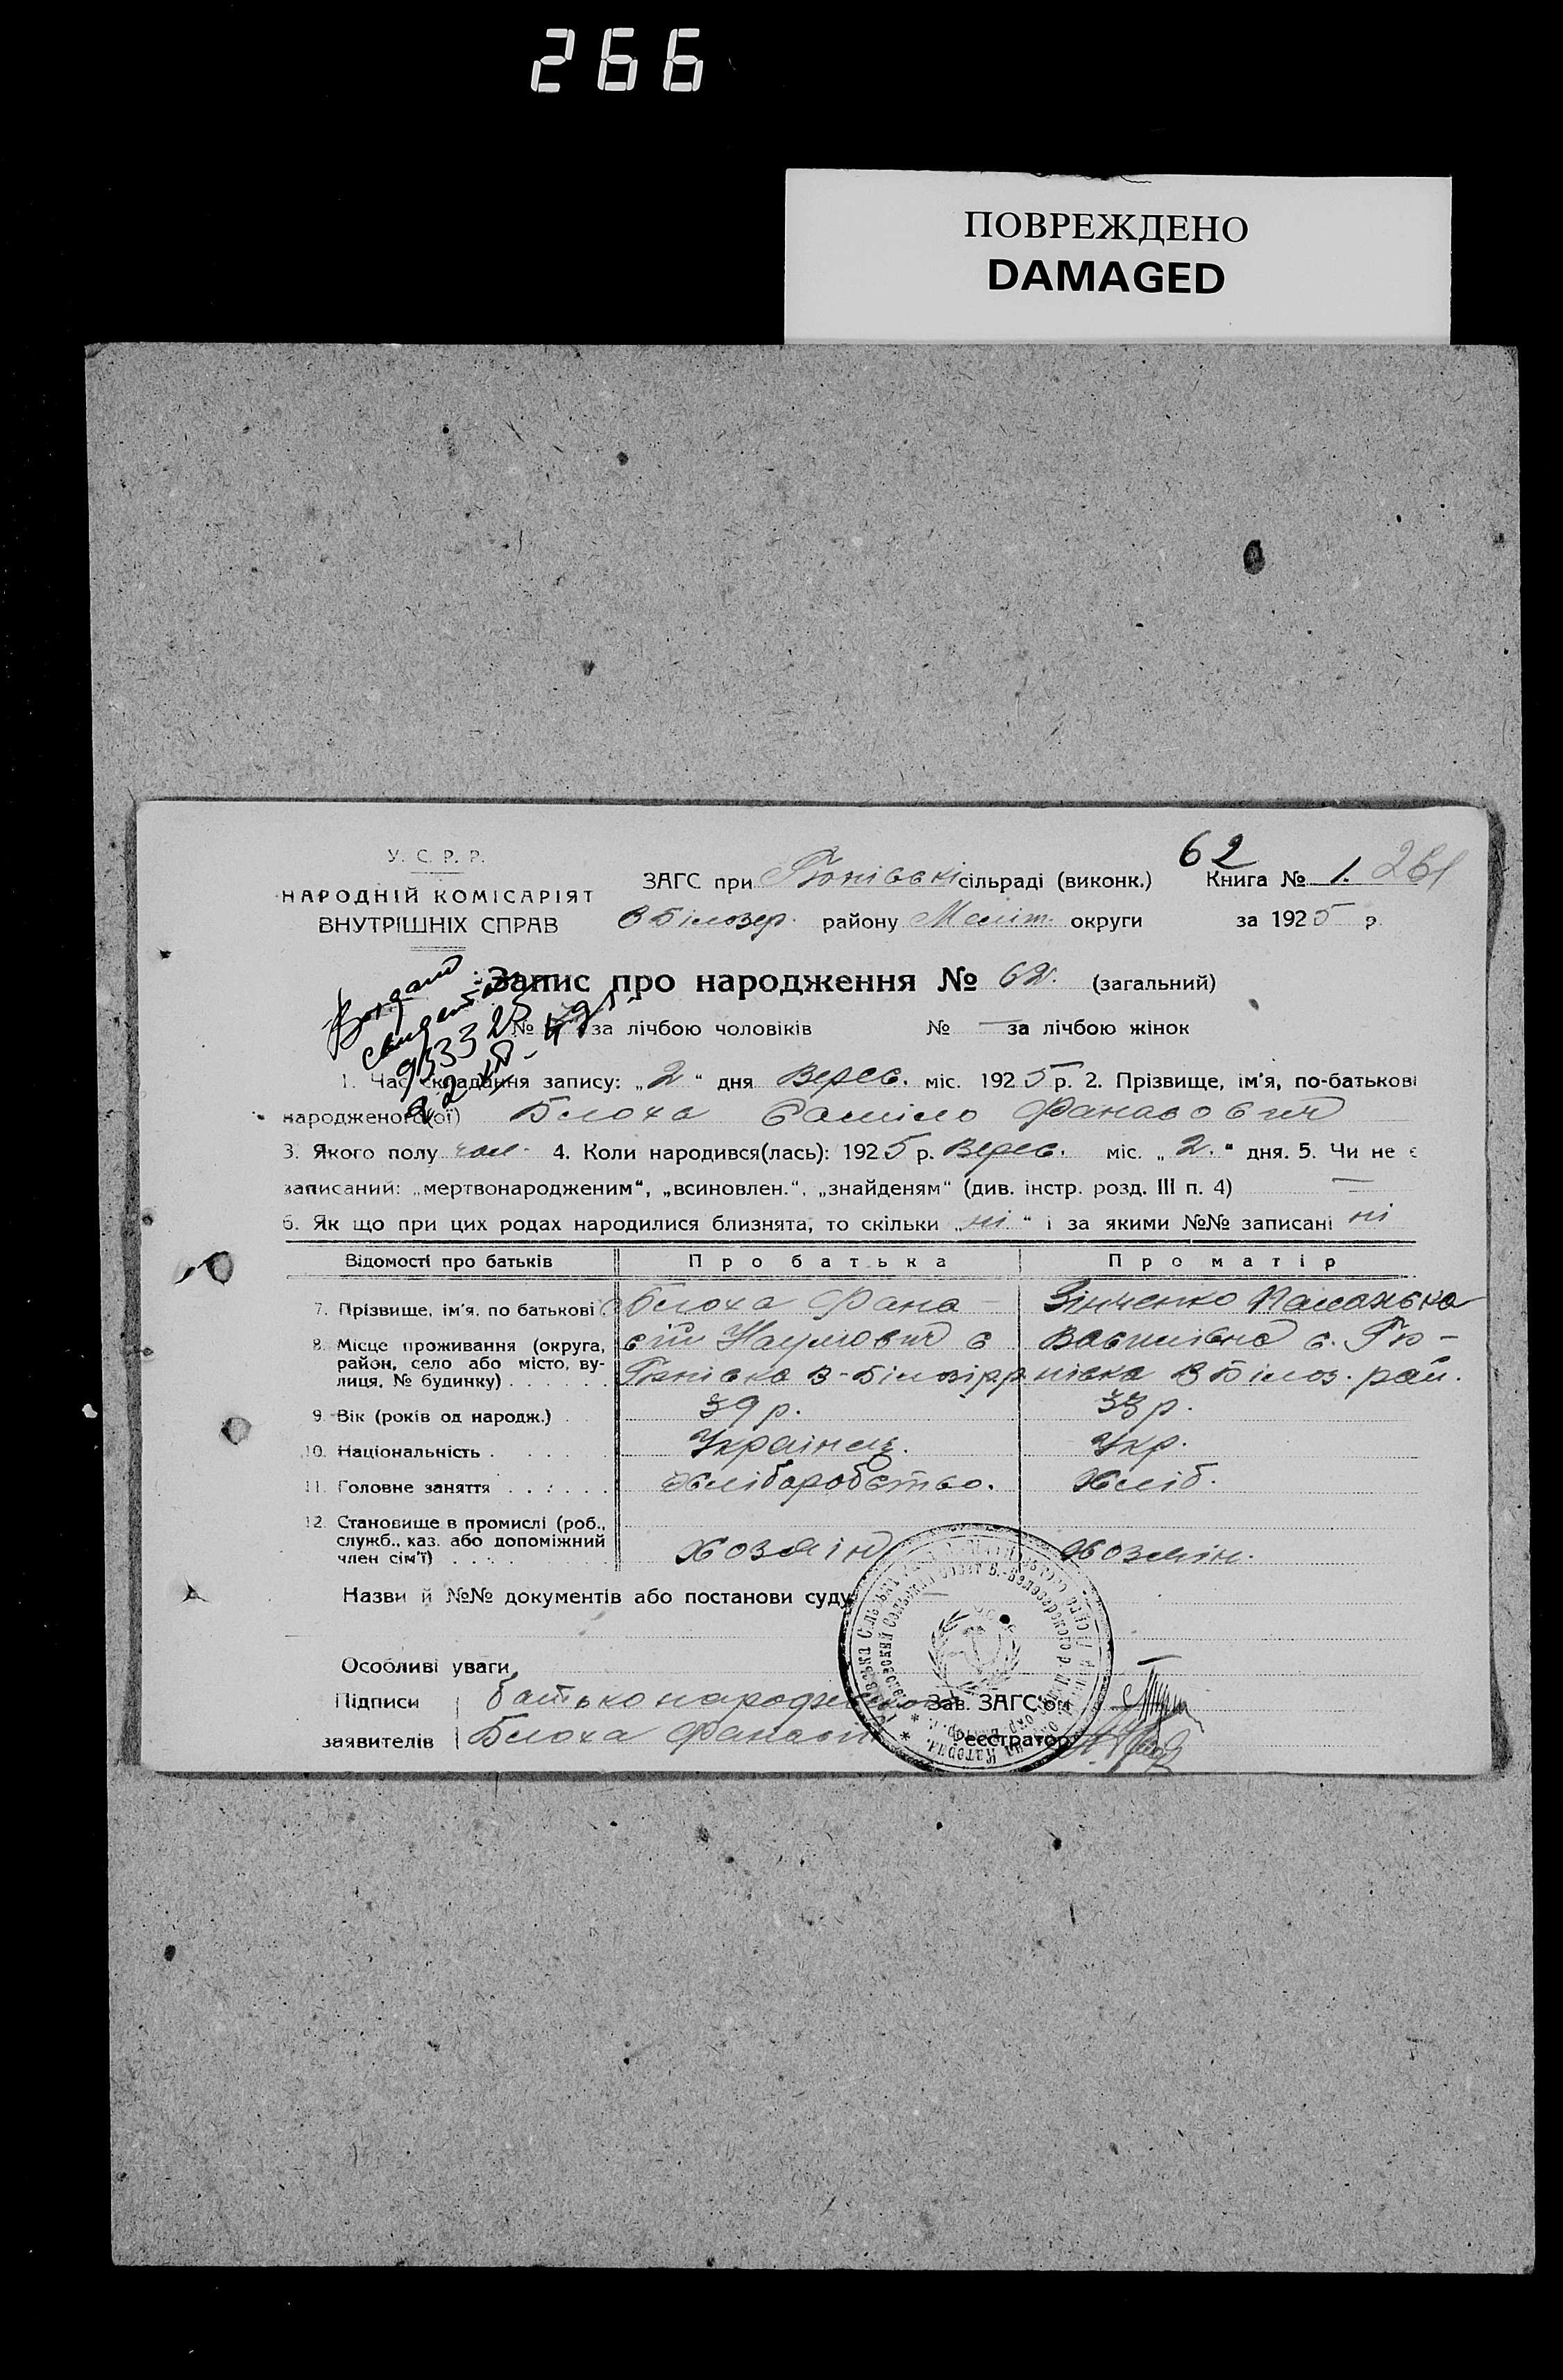 266
ПОВРЕЖДЕНО
DAMAGED
У. С. Р. Р.
НАРОДНІЙ КОМІСАРІЯТ
ВНУТРІШНІХ СПРАВ
62
ЗАГС при сільраді (виконк.) Книга № 1. 261
В Білозер. району Меліт. округи за 1925 р.
Запис про народження № 62. (загальний)
№ за лічбою чоловіків № — за лічбою жінок
1. Час складання запису: „2“ дня Верес. міс. 1925 р. 2. Прізвище, ім'я, по-батькові
народженого(ої) Блоха
3. Якого полу чол. 4. Коли народився(лась): 1925 р. Верес. міс. „2.“ дня. 5. Чи не є
записаний: „мертвонародженим“, „всиновлен.“, „знайденям“ (див. інстр. розд. III п. 4) —
6. Як що при цих родах народилися близнята, то скільки „ні“ і за якими №№ записані ні
Відомості про батьків Про батька Про матір
7. Прізвище, ім'я, по батькові Блоха Фана- Зінченко Паланька
8. Місце проживання (округа, сій Наумович с Василівна с. Гю-
район, село або місто, ву-
лиця, № будинку) Гюнівка В-Білозір р нівка В Білоз. рай.
9. Вік (років од народж.) 39 р. 33 р.
10. Національність Українець. Укр.
11. Головне заняття Хліборобство. Хліб.
12. Становище в промислі (роб.,
служб., каз. або допоміжний
член сім'ї) Хозяін Хозяін.
Назви й №№ документів або постанови суду
Особливі уваги
Підписи батько народженого Зав. ЗАГС'ом
заявителів Блоха Фанасій Реєстратор